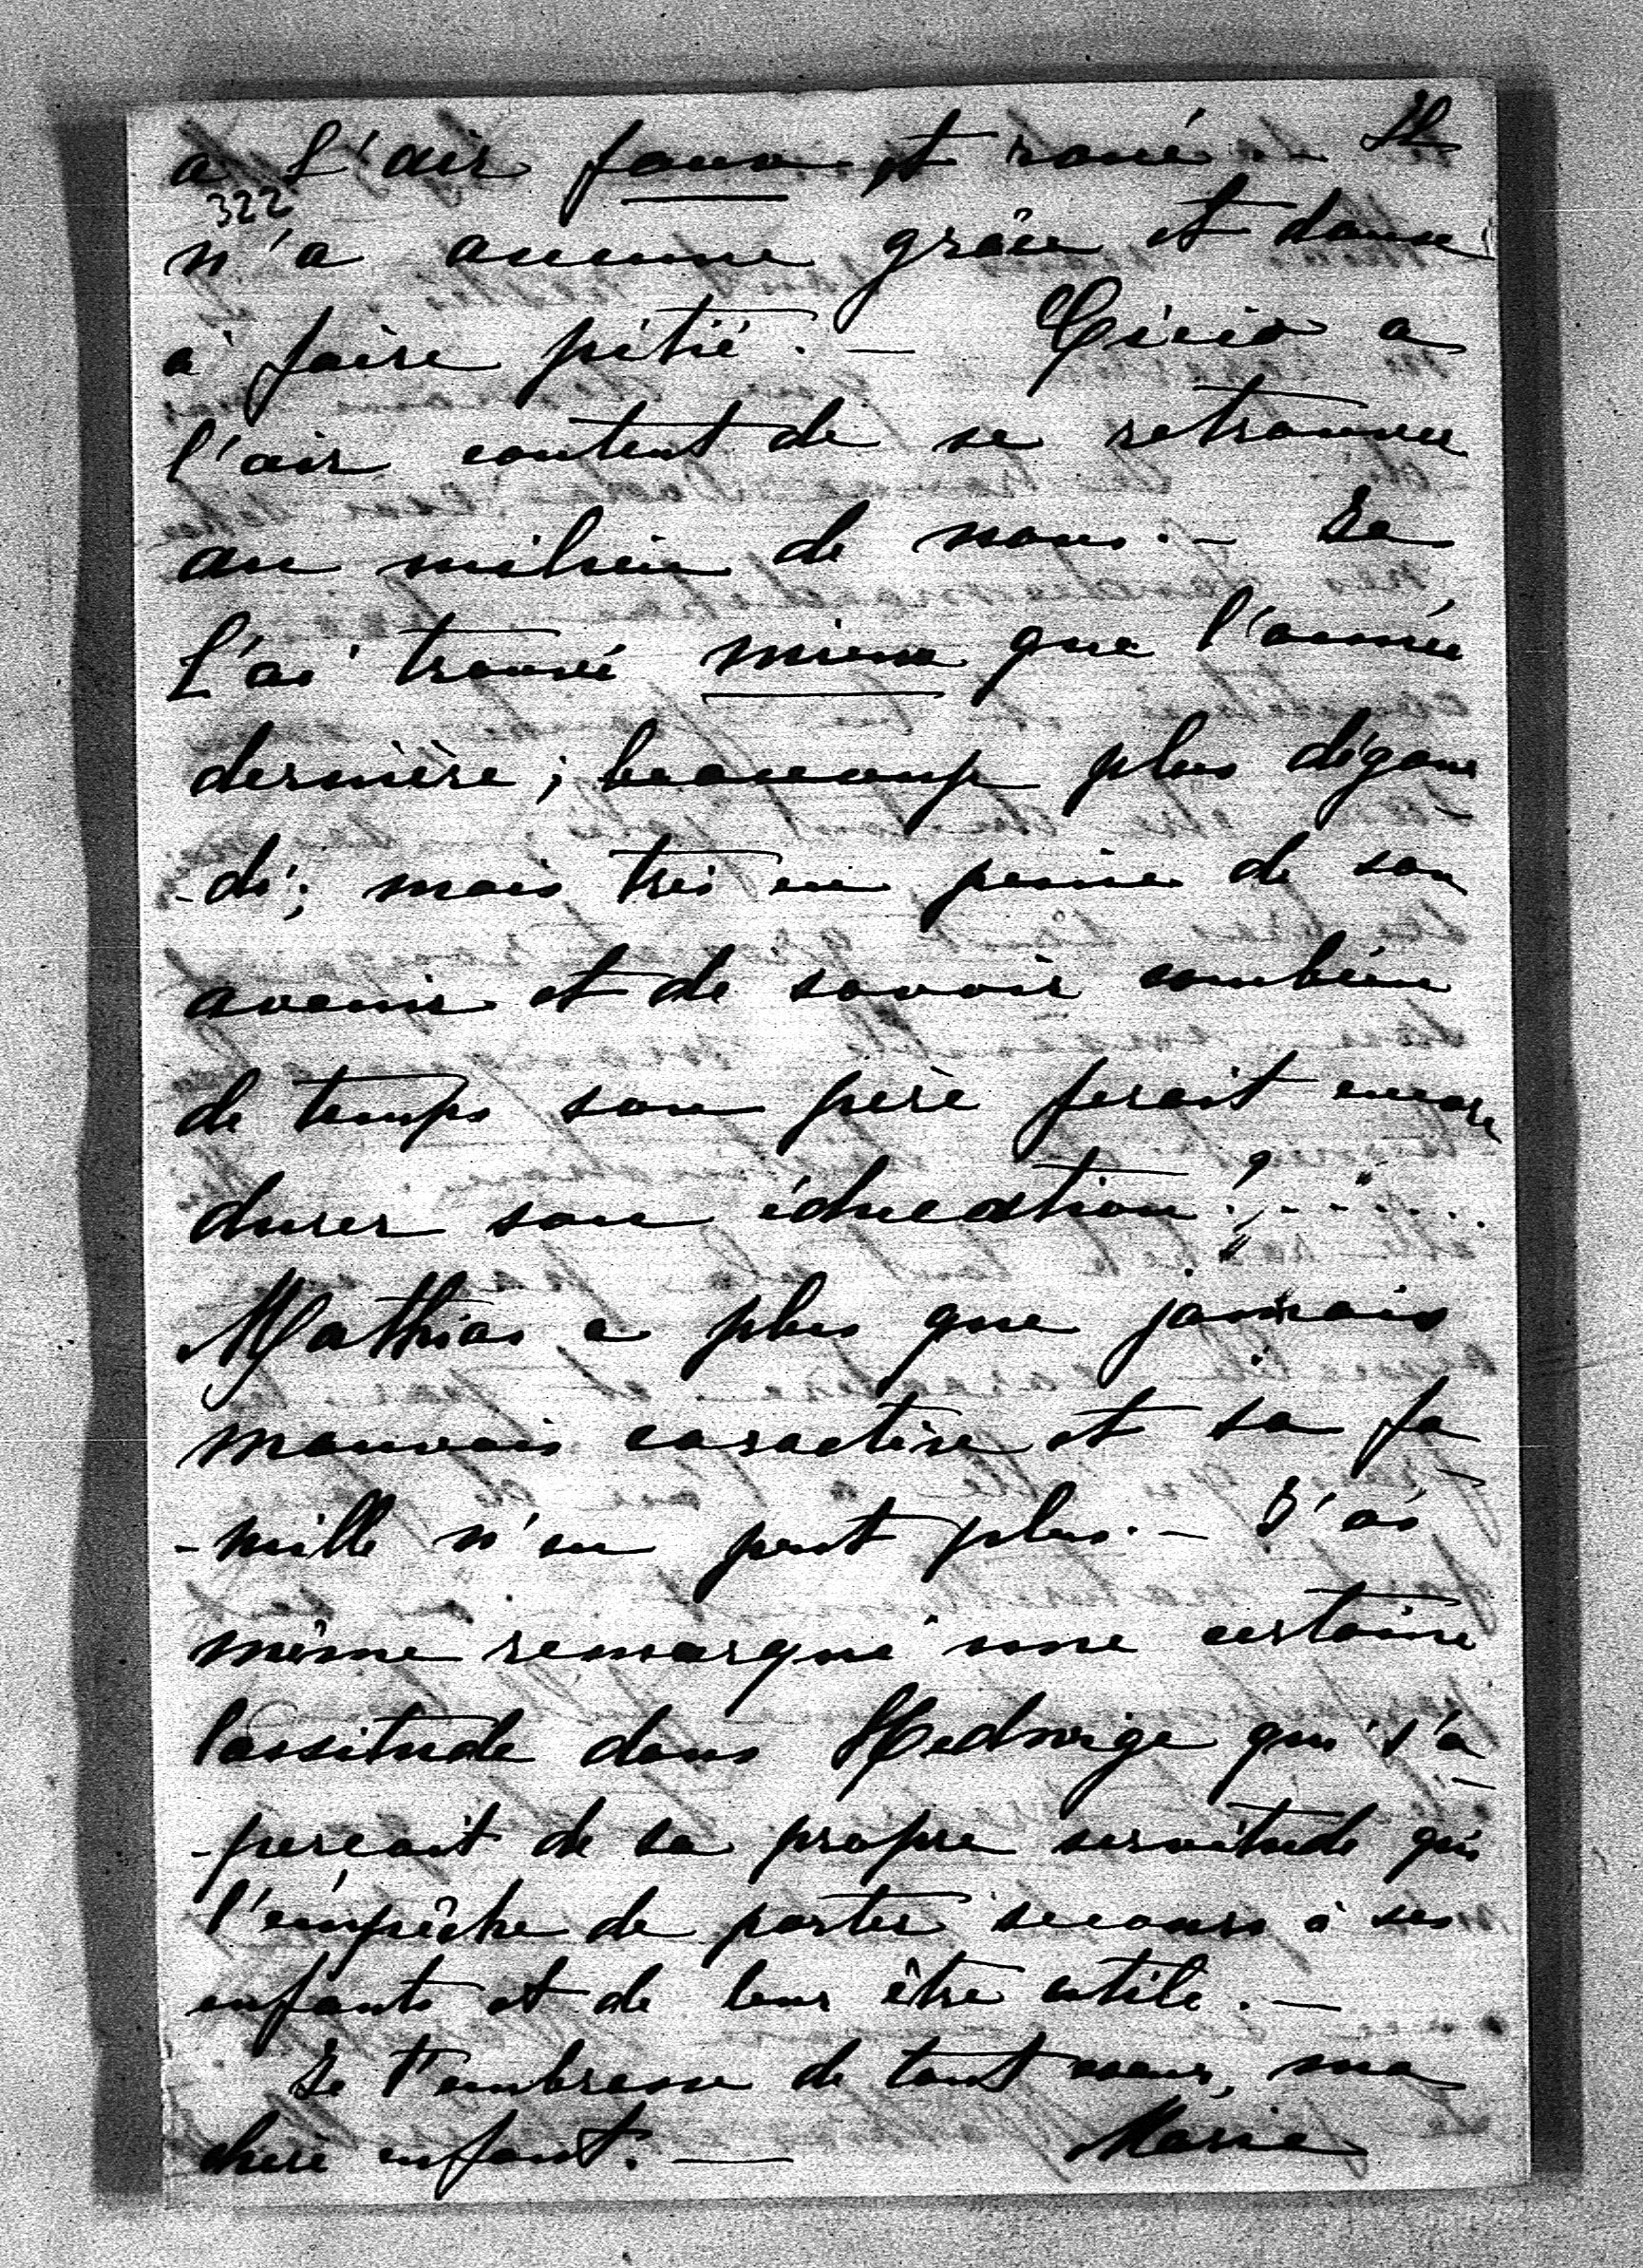 a l'air faux et roué. - Il
322
n'a aucune grâce et danse
à faire pitié. — Cicio a
l'air content de se retrouver
au milieu de nous. - Je
l'ai trouvé mieux que l'année
dernière; beaucoup plus dégour-
-di; mais très en peine de son
avenir et de savoir combien
de temps son père ferait encore
durer son éducation!......
Mathias a plus que jamais
mauvais caractère et sa fa-
-mille n'en peut plus. - J'ai
même remarqué une certaine
lassitude dans Hedwige qui s'a-
-perçoit de sa propre servitude qui
l'empêche de porter secours à ses
enfants et de leur être utile. —
Je t'embrasse de tout coeur, ma
chère enfant. — Marie